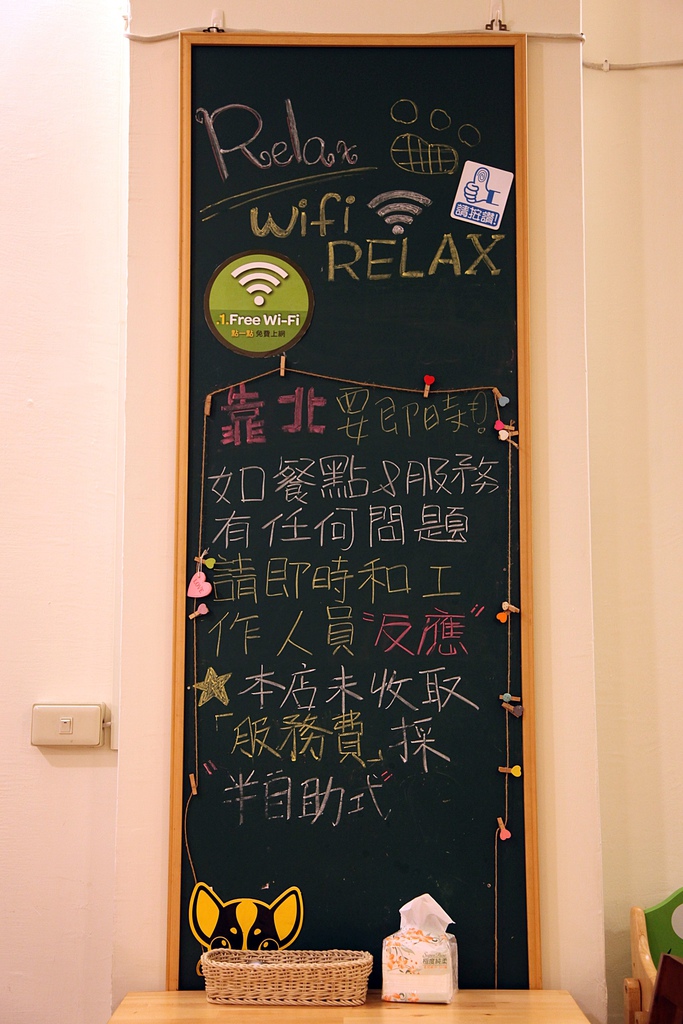 Relax
wifi
請按讚!
RELAX
.1.Free Wi-Fi
點一點 免費上網
靠北要即時!
如餐點&服務
有任何問題
請即時和工
作人員"反應"
本店未收取
「服務費」採
"半自助式"